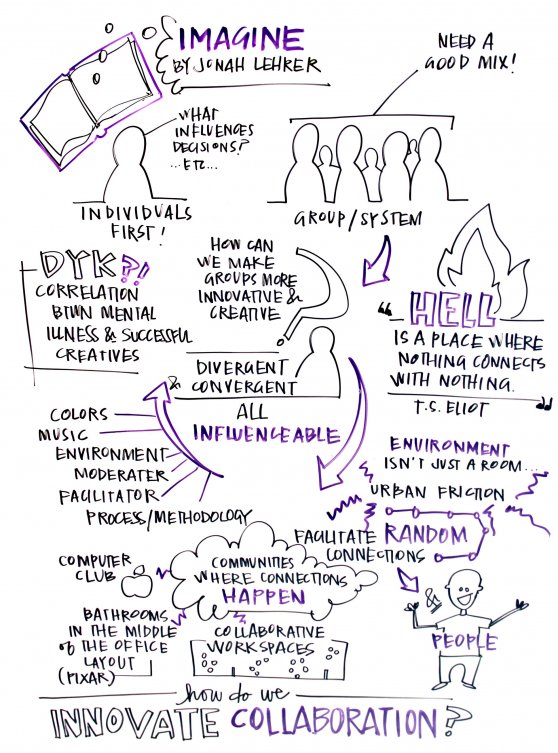 IMAGINE
BY JONAH LEHRER
NEED A
GOOD MIX!
WHAT
INFLUENCES
DECISIONS?
...ETC...
INDIVIDUALS
FIRST!
GROUP/SYSTEM
DYK?!
CORRELATION
BTWN MENTAL
ILLNESS & SUCCESSFUL
CREATIVES
HOW CAN
WE MAKE
GROUPS MORE
INNOVATIVE &
CREATIVE
?
"HELL
IS A PLACE WHERE
NOTHING CONNECTS
WITH NOTHING."
T.S. ELIOT
DIVERGENT
& CONVERGENT
ALL
INFLUENCEABLE
COLORS
MUSIC
ENVIRONMENT
MODERATER
FACILITATOR
PROCESS/METHODOLOGY
ENVIRONMENT
ISN'T JUST A ROOM...
URBAN FRICTION
FACILITATE RANDOM
CONNECTIONS
& PEOPLE
COMPUTER
CLUB
COMMUNITIES
WHERE CONNECTIONS
HAPPEN
BATHROOMS
IN THE MIDDLE
of THE OFFICE
LAYOUT
(PIXAR)
COLLABORATIVE
WORKSPACES
how do we
INNOVATE COLLABORATION?